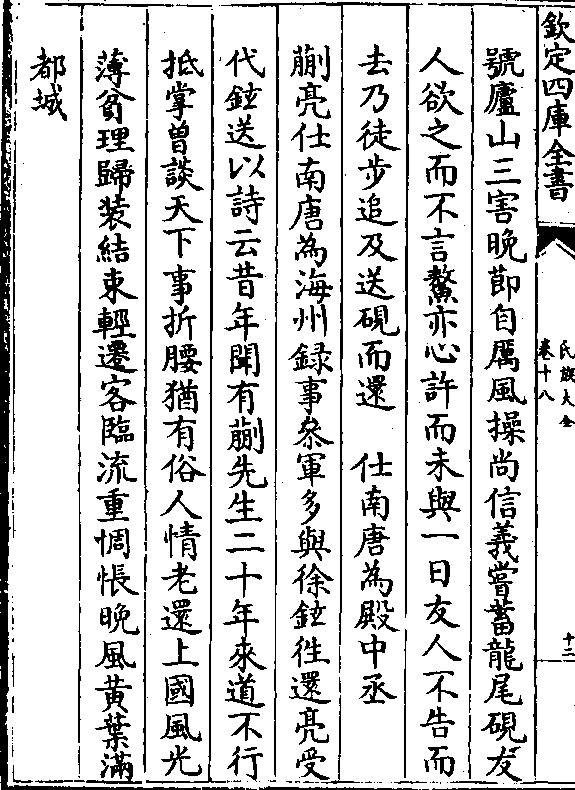 欽定四庫全書
氏族大全
卷十八
十二
號廬山三害晚節自厲風操尚信義嘗蓄龍尾硯友
人欲之而不言鰲亦心許而未與一日友人不告而
去乃徒步追及送硯而還　仕南唐為殿中丞
蒯亮仕南唐為海州録事叅軍多與徐鉉徃還亮受
代鉉送以詩云昔年聞有蒯先生二十年來道不行
抵掌曽談天下事折腰猶有俗人情老還上國風光
薄貧理歸装結束輕遷客臨流重惆悵晚風黄葉滿
都城